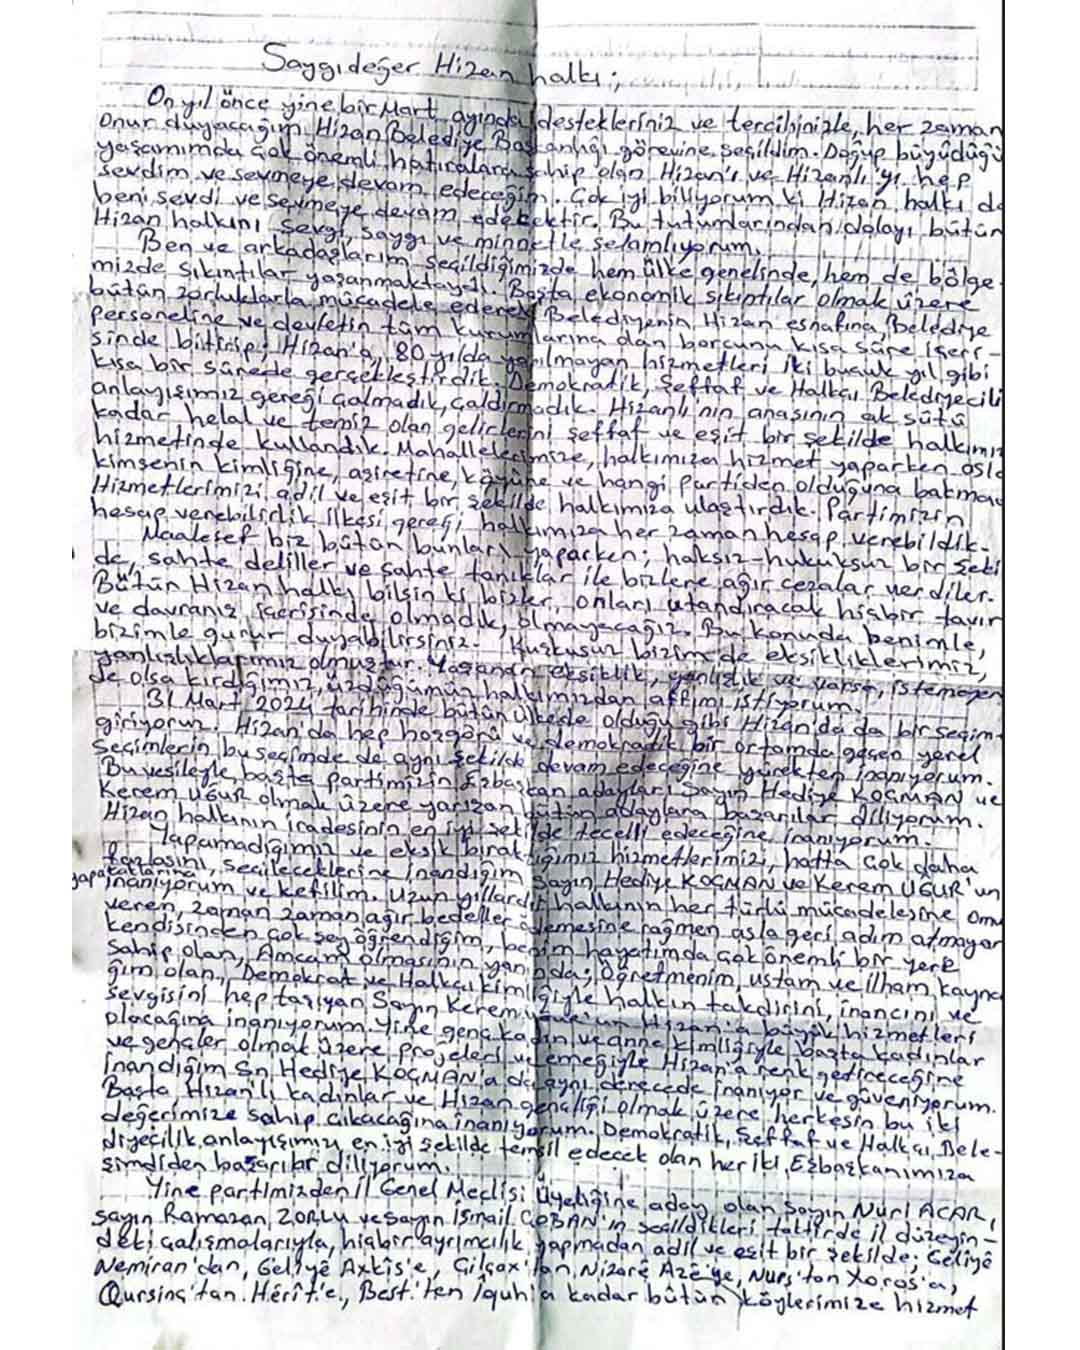 Saygıdeğer Hizan halkı;
On yıl önce yine bir Mart ayında destekleriniz ve tercihinizle, her zaman
Onur duyacağım Hizan Belediye Başkanlığı görevine seçildim. Doğup büyüdüğü
yaşamımda çok önemli hatıralara sahip olan Hizan'ı ve Hizanlı'yı hep
sevdim ve sevmeye devam edeceğim. Çok iyi biliyorum ki Hizan halkı da
beni sevdi ve sevmeye devam edecektir. Bu tutumlarından dolayı bütün
Hizan halkını sevgi, saygı ve minnetle selamlıyorum.
Ben ve arkadaşlarım seçildiğimizde hem ülke genelinde, hem de bölge-
mizde sıkıntılar yaşanmaktaydı. Başta ekonomik sıkıntılar olmak üzere
bütün zorluklarla mücadele ederek Belediyenin Hizan esnafına, Belediye
personeline ve devletin tüm kurumlarına olan borcunu kısa süre içeri-
sinde bitirip; Hizan'a, 80 yılda yapılmayan hizmetleri iki buçuk yıl gibi
kısa bir sürede gerçekleştirdik. Demokratik, Şeffaf ve Halkçı Belediyecili
anlayışımız gereği çalmadık, çaldırmadık. Hizanlı'nın anasının ak sütü
kadar helal ve temiz olan gelirlerini şeffaf ve eşit bir şekilde halkımız
hizmetinde kullandık. Mahallelerimize, halkımıza hizmet yaparken asla
kimsenin kimliğine, aşiretine, köyüne ve hangi partiden olduğuna bakmad
Hizmetlerimizi adil ve eşit bir şekilde halkımıza ulaştırdık. Partimizin
hesap verebilirlik ilkesi gereği halkımıza her zaman hesap verebildik.
Maalesef biz bütün bunları yaparken; haksız-hukuksuz bir şeki
de, sahte deliller ve sahte tanıklar ile bizlere ağır cezalar verdiler.
Bütün Hizan halkı bilsin ki bizler, onları utandıracak hiçbir tavır
ve davranış içerisinde olmadık, olmayacağız. Bu konuda benimle,
bizimle gurur duyabilirsiniz. Kuşkusuz bizim de eksikliklerimiz,
yanlışlıklarımız olmuştur. Yaşanan eksiklik, yanlışlık varsa, istemeyen
de olsa kırdığımız, üzdüğümüz halkımızdan affımı istiyorum.
31 Mart 2024 tarihinde bütün ülkede olduğu gibi Hizan'da da bir seçim
giriyoruz. Hizan'da hep hoşgörü ve demokratik bir ortamda geçen yerel
Seçimlerin bu seçimde de aynı şekilde devam edeceğine yürekten inanıyorum.
Bu vesileyle, başta partimizin Eşbaşkan adayları Sayın Hediye KOÇMAN ve
Kerem UĞUR olmak üzere yarışan bütün adaylara başarılar diliyorum.
Hizan halkının iradesinin en iyi şekilde tecelli edeceğine inanıyorum.
Yapamadığımız ve eksik bıraktığımız hizmetlerimizi, hatta çok daha
fazlasını, seçileceklerine inandığım Sayın Hediye KOÇMAN ve Kerem UĞUR'un
yapacaklarına inanıyorum ve kefilim. Uzun yıllardır halkının her türlü mücadelesine omu
veren, zaman zaman ağır bedeller ödemesine rağmen asla geri adım atmayan
kendisinden çok şey öğrendiğim, benim hayatımda çok önemli bir yere
sahip olan, Amcam olmasının yanında; Öğretmenim, ustam ve ilham kayna
ğım olan, Demokrat ve Halkçı kimliğiyle halkın takdirini, inancını ve
sevgisini hep taşıyan Sayın Kerem UĞUR'un Hizan'a büyük hizmetleri
olacağına inanıyorum. Yine genç kadın ve anne kimliğiyle başta kadınlar
ve gençler olmak üzere projeleri ve emeğiyle Hizan'a renk getireceğine
inandığım Sn. Hediye KOÇMAN'a da aynı derecede inanıyor ve güveniyorum.
Başta Hizan'lı kadınlar ve Hizan gençliği olmak üzere herkesin bu iki
değerimize sahip çıkacağına inanıyorum. Demokratik, Şeffaf ve Halkçı Bele-
diyecilik anlayışımızı en iyi şekilde temsil edecek olan her iki Eşbaşkanımıza
şimdiden başarılar diliyorum.
Yine partimizden İl Genel Meclisi Üyeliğine aday olan Sayın Nuri ACAR,
Sayın Ramazan ZORLU ve Sayın İsmail ÇOBAN'ın seçildikleri taktirde il düzeyin-
deki çalışmalarıyla, hiçbir ayrımcılık yapmadan adil ve eşit bir şekilde; Geliyê
Nemiran'dan, Geliyê Axkîs'e, Nizarê Azê'ye, Nurs'tan Xoros'a,
Hêrît'e, kadar bütün köylerimize hizmet